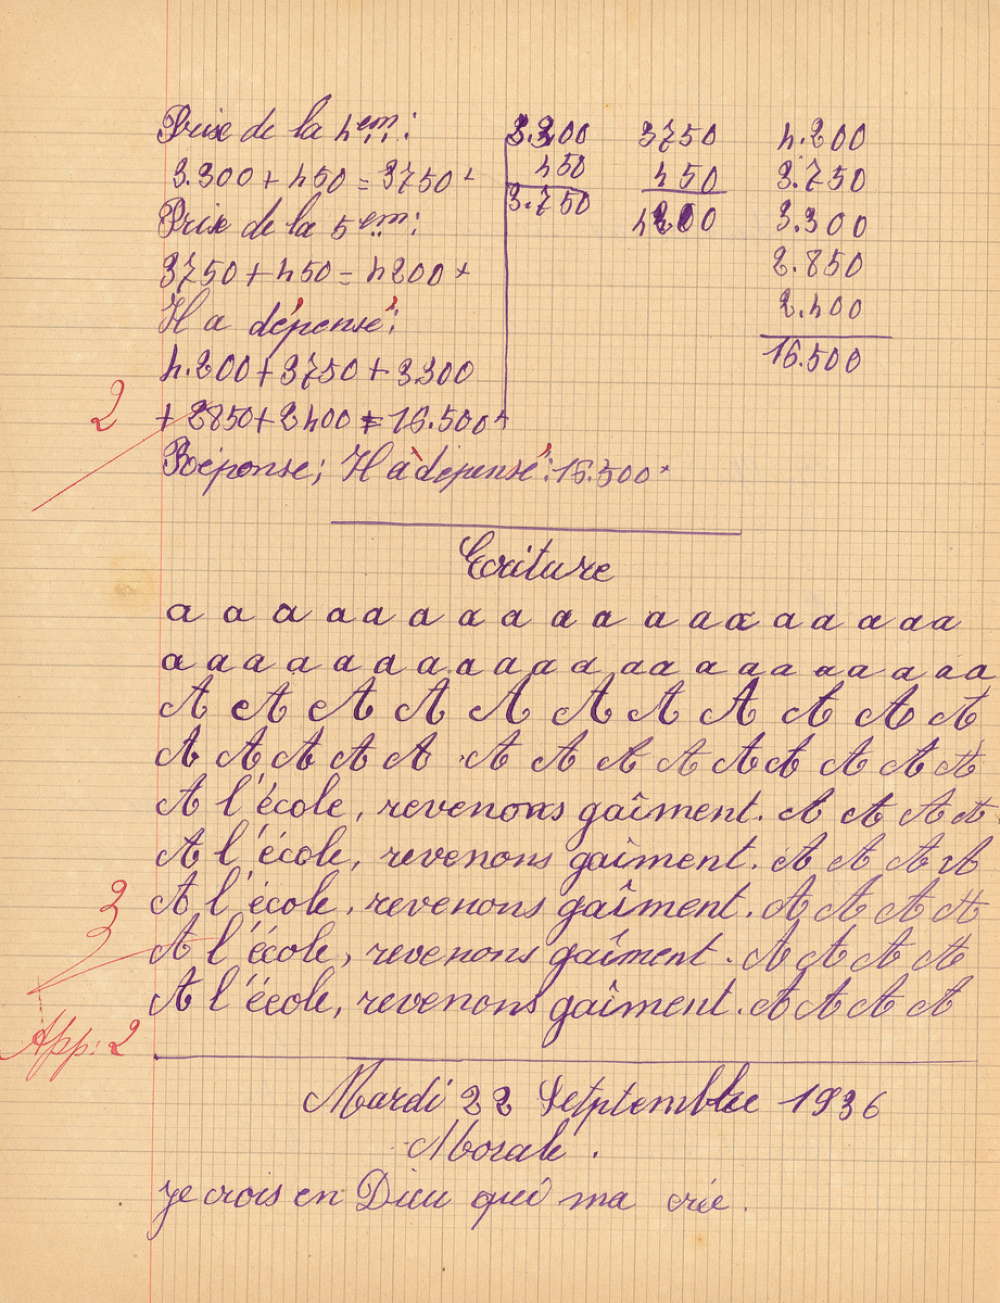 Prise de la 4em:
3.300 + 450 = 3750
Prise de la 5em:
3750 + 450 = 4200
Il a dépensé:
4.200 + 3750 + 3300
+ 2850 + 2400 = 16.500
Réponse; Il a dépensé: 16.500
3.300
450
3.750
3750
450
4200
4.200
3.750
3.300
2.850
2.400
16.500
2
Ecriture
a a a a a a a a a a a a a a a a a a a
a a a a a a a a a a a a a a a a a a a a
A A A A A A A A A A A
A A A A A A A A A A A A A A
A l'école, revenons gaîment. A A A A
A l'école, revenons gaîment. A A A A
A l'école, revenons gaîment. A A A A
A l'école, revenons gaîment. A A A A
A l'école, revenons gaîment. A A A A
3
3
App: 2
Mardi 22 Setptembre 1936
Morale.
je crois en Dieu qui ma crée.